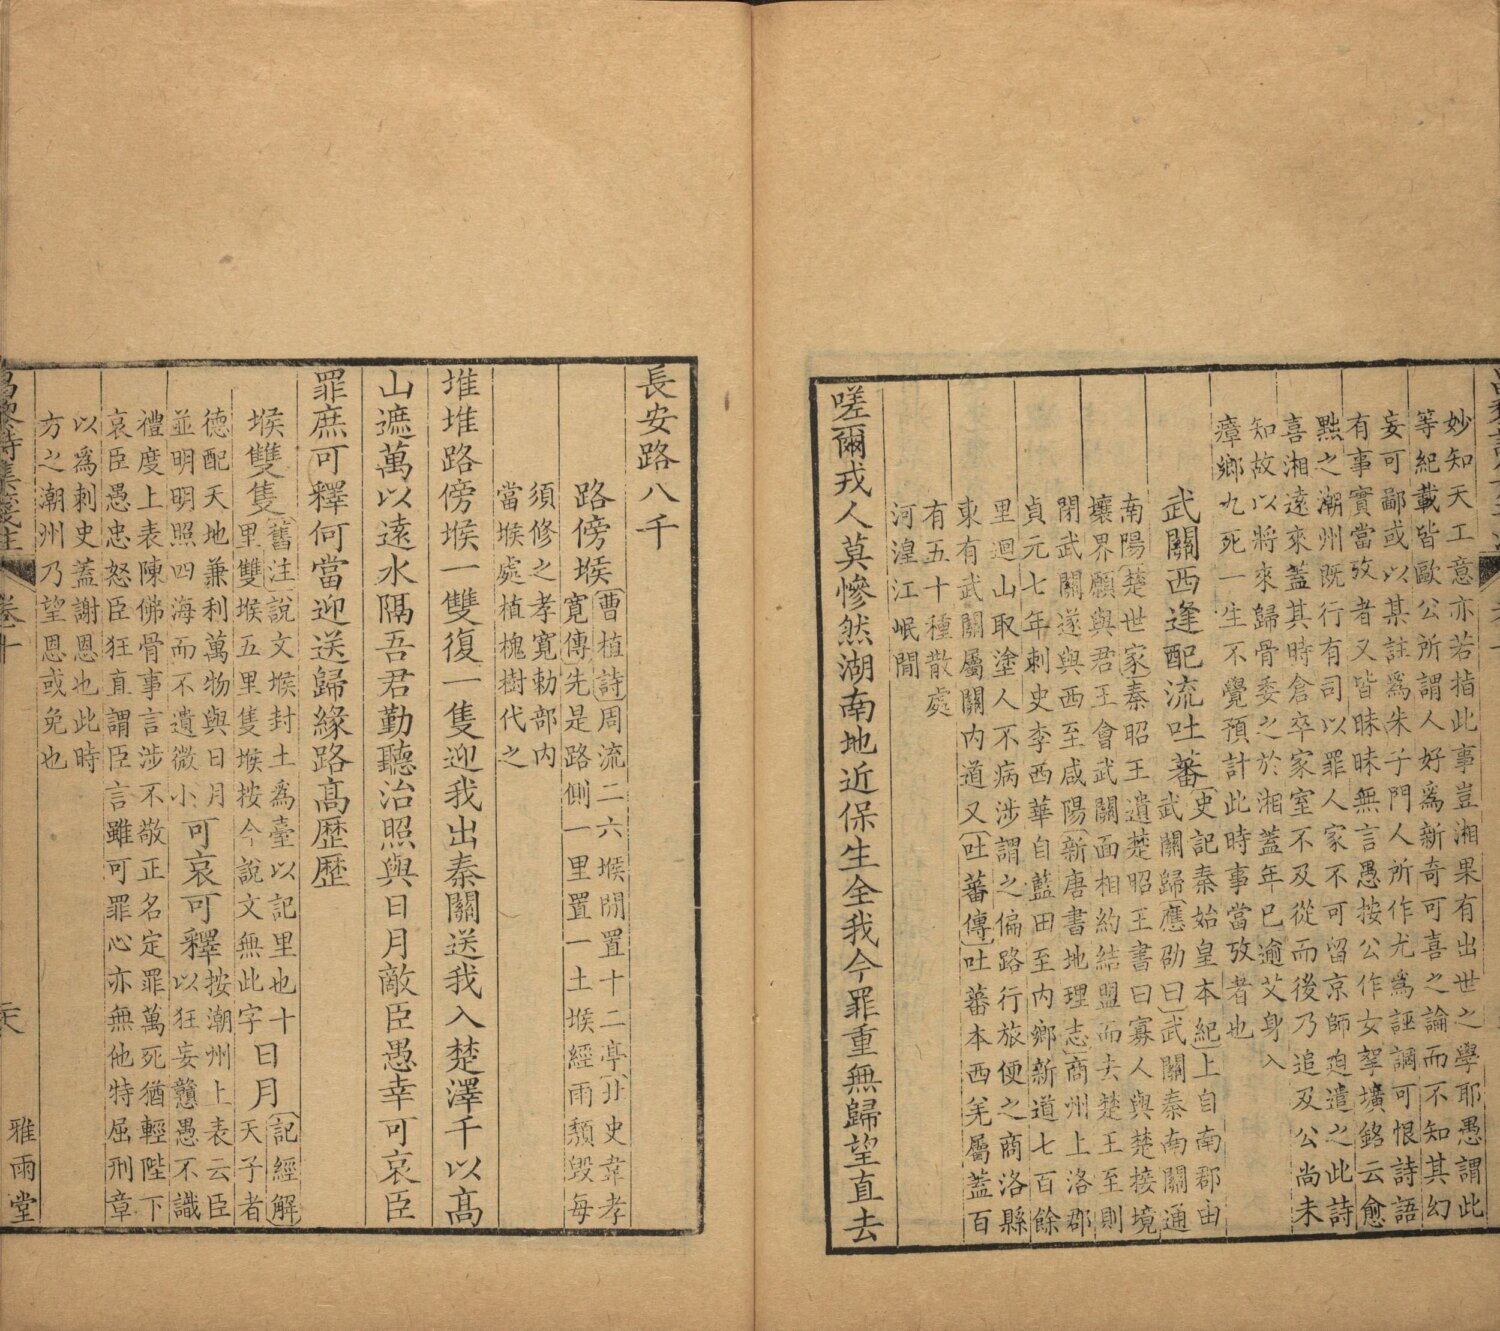 妙知天工意亦若指此事豈湘果有出世之學耶愚謂此
等紀載皆歐公所謂人好爲新奇可喜之論而不知其幻
妄可鄙或以某註爲朱子門人所作尤爲誣調可恨詩語
有事實當攷者又皆昧昧無言愚按公作女挐壙銘云愈
黜之潮州既行有司以罪人家不可留京師迫遣之此詩
喜湘遠來蓋其時倉卒家室不及從而後乃追及公尚未
知故以將來歸骨委之於湘蓋年已逾艾身入
瘴鄉九死一生不覺預計此時事當攷者也
武關西逢配流吐蕃
史記秦始皇本紀上自南郡由
武關歸應劭曰武關秦南關通
南陽楚世家秦昭王遺楚昭王書曰寡人與楚接境
壤界願與君王會武關面相約結盟而去楚王至則
閉武關遂與西至咸陽新唐書地理志商州上洛郡
貞元七年刺史李西華自藍田至內鄉新道七百餘
里迴山取塗人不病涉謂之偏路行旅便之商洛縣
東有武關屬關內道又吐蕃傳吐蕃本西羌屬蓋百
有五十種散處
河湟江岷間
嗟爾戎人莫慘然湖南地近保生全我今罪重無歸望直去
長安路八千
路傍堠
曹植詩周流二六堠間置十二亭北史韋孝
寬傳先是路側一里置一土堠經雨頽毀每
須修之孝寬勅部內
當堠處植槐樹代之
堆堆路傍堠一雙復一隻迎我出秦關送我入楚澤千以高
山遮萬以遠水隔吾君勤聽治照與日月敵臣愚幸可哀臣
罪庶可釋何當迎送歸緣路高歷歷
堠雙隻
舊注說文堠封土爲臺以記里也十
里雙堠五里隻堠按今說文無此字
日月
記經解
天子者
德配天地兼利萬物與日月
並明明照四海而不遺微小
可哀可釋
按潮州上表云臣
以狂妄戇愚不識
禮度上表陳佛骨事言涉不敬正名定罪萬死猶輕陛下
哀臣愚忠恕臣狂直謂臣言雖可罪心亦無他特屈刑章
以爲刺史蓋謝恩也此時
方之潮州乃望恩或免也
昌黎詩集箋注
卷十
雅雨堂